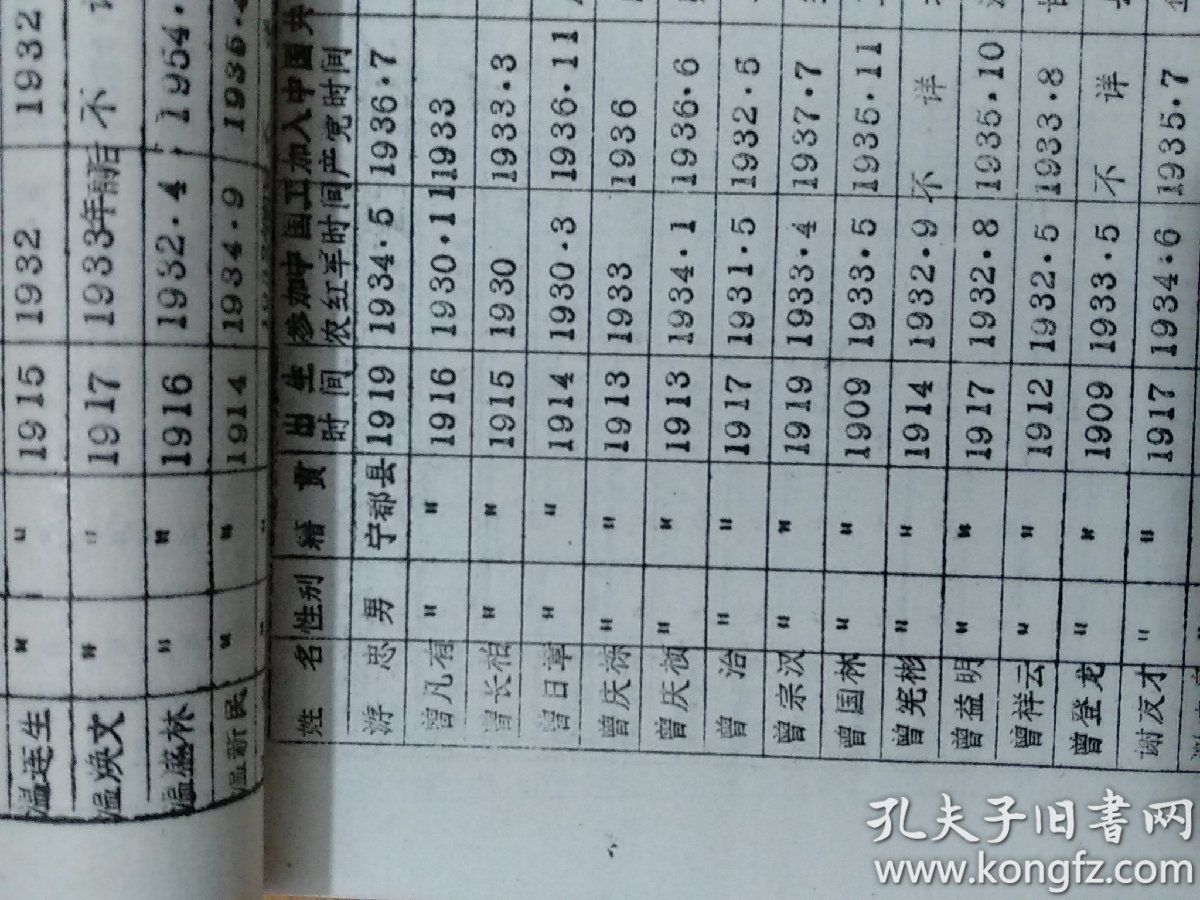 温连生 " " 1915 1932 1932
温焕文 " " 1917 1933年前后 不
温盛林 " " 1916 1932·4 1954·
温新民 " " 1914 1934·9 1936·
姓 名 性别 籍 贯 出生时间 参加中国工农红军时间 加入中国共产党时间
游 忠 男 宁都县 1919 1934·5 1936·7
曾凡有 " " 1916 1930·11 1933
曾长柏 " " 1915 1930 1933·3
曾日章 " " 1914 1930·3 1936·11
曾庆 " " 1913 1933 1936
曾庆桢 " " 1913 1934·1 1936·6
曾 治 " " 1917 1931·5 1932·5
曾宗汉 " " 1919 1933·4 1937·7
曾国林 " " 1909 1933·5 1935·11
曾宪彬 " " 1914 1932·9 不 详
曾益明 " " 1917 1932·8 1935·10
曾祥云 " " 1912 1932·5 1933·8
曾登龙 " " 1909 1933·5 不 详
谢友才 " " 1917 1934·6 1935·7
孔夫子旧書网
www.kongfz.com